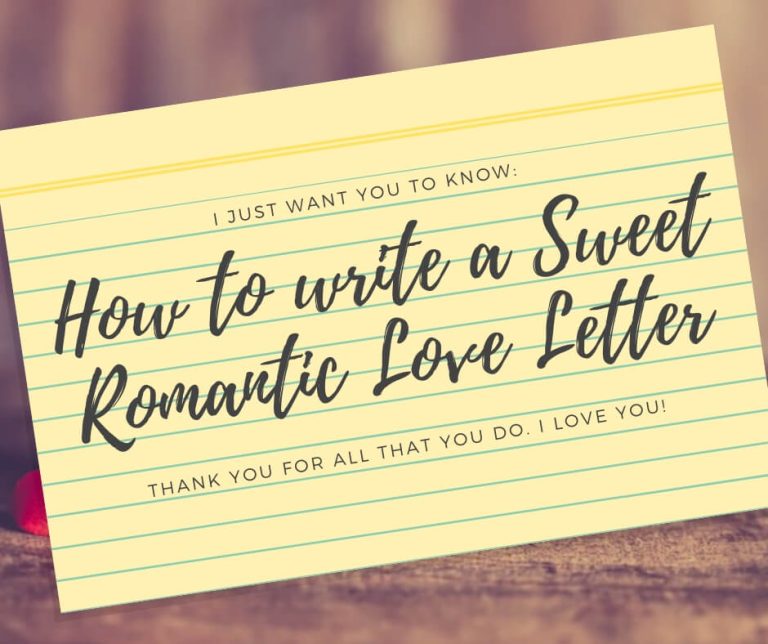 I JUST WANT YOU TO KNOW:
How to write a Sweet
Romantic Love Letter
THANK YOU FOR ALL THAT YOU DO. I LOVE YOU!